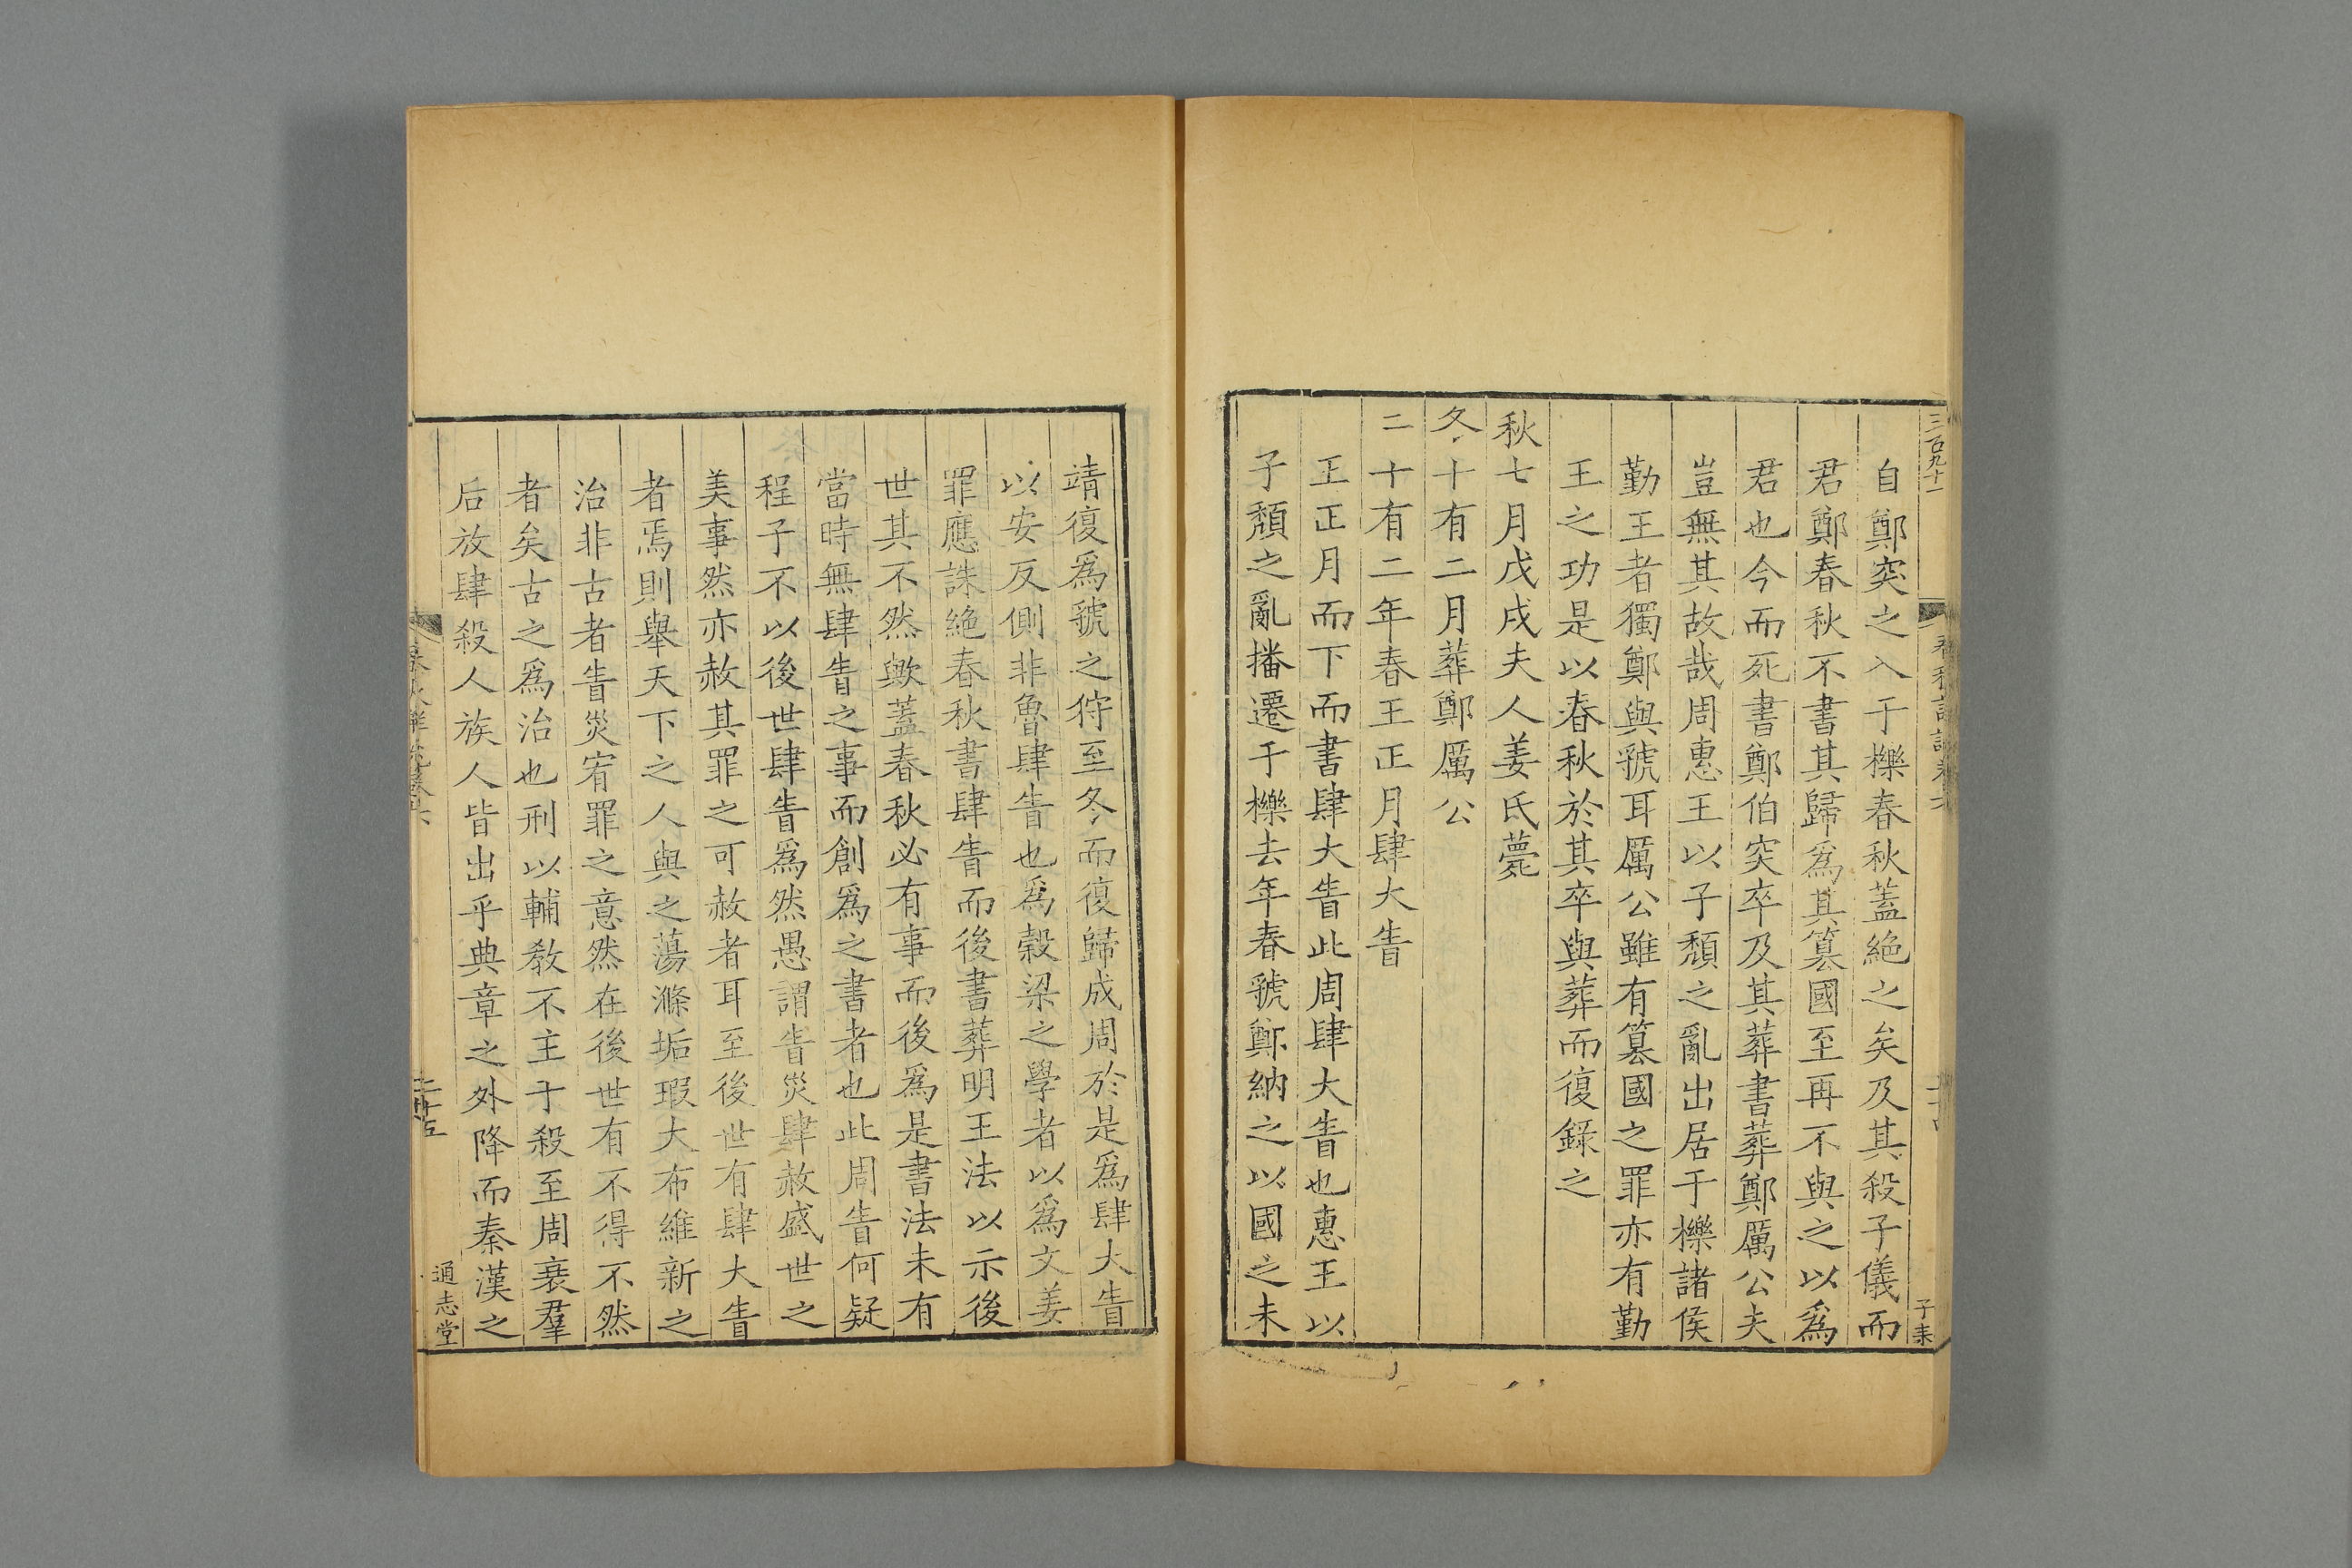 三百九十一
自鄭突之入于櫟春秋蓋絶之矣及其殺子儀而
君鄭春秋不書其歸爲其簒國至再不與之以爲
君也今而死書鄭伯突卒及其葬書葬鄭厲公夫
豈無其故哉周惠王以子頹之亂出居于櫟諸侯
勤王者獨鄭與虢耳厲公雖有簒國之罪亦有勤
王之功是以春秋於其卒與葬而復録之
秋七月戊戌夫人姜氏薨
冬十有二月葬鄭厲公
二十有二年春王正月肆大眚
王正月而下而書肆大眚此周肆大眚也惠王以
子頹之亂播遷于櫟去年春虢鄭納之以國之未
靖復爲虢之狩至冬而復歸成周於是爲肆大眚
以安反側非魯肆眚也爲榖梁之學者以爲文姜
罪應誅絶春秋書肆眚而後書葬明王法以示後
世其不然歟蓋春秋必有事而後爲是書法未有
當時無肆眚之事而創爲之書者也此周眚何疑
程子不以後世肆眚爲然愚謂眚災肆赦盛世之
美事然亦赦其罪之可赦者耳至後世有肆大眚
者焉則舉天下之人與之蕩滌垢瑕大布維新之
治非古者眚災宥罪之意然在後世有不得不然
者矣古之爲治也刑以輔教不主于殺至周衰羣
后放肆殺人族人皆出乎典章之外降而秦漢之
通志堂